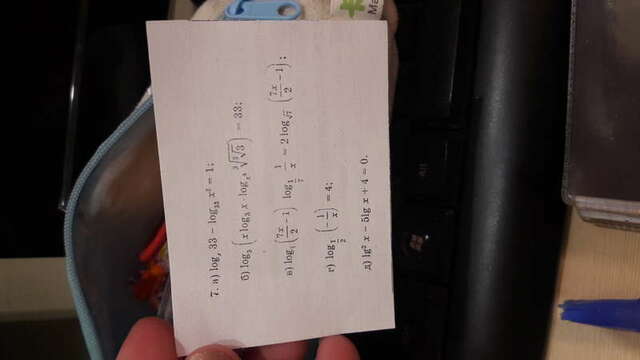 7. а) log_x 33 − log_33 x² = 1;
б) log_3 (x log_3 x · log_x³ ∛√3) = 33;
в) log_7 (7x/2 − 1) log_1/7 1/x = 2 log_√7 (7x/2 − 1);
г) log_1/2 (−1/x) = 4;
д) lg² x − 5lg x + 4 = 0.
Ma
Alt